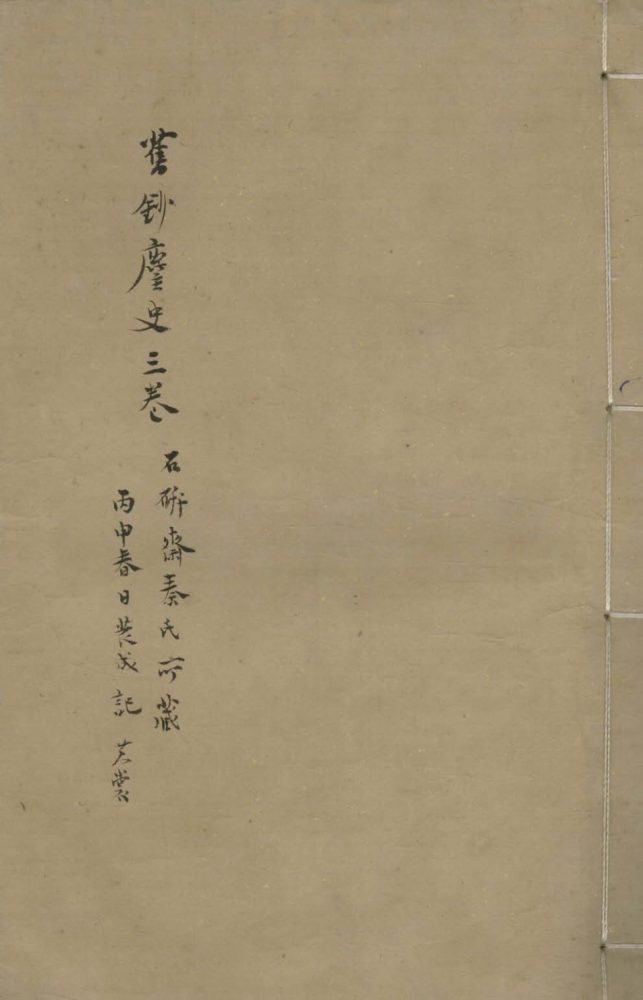 舊鈔麈史三卷
石研齋秦氏所藏
丙申春日裝成記 黃裳